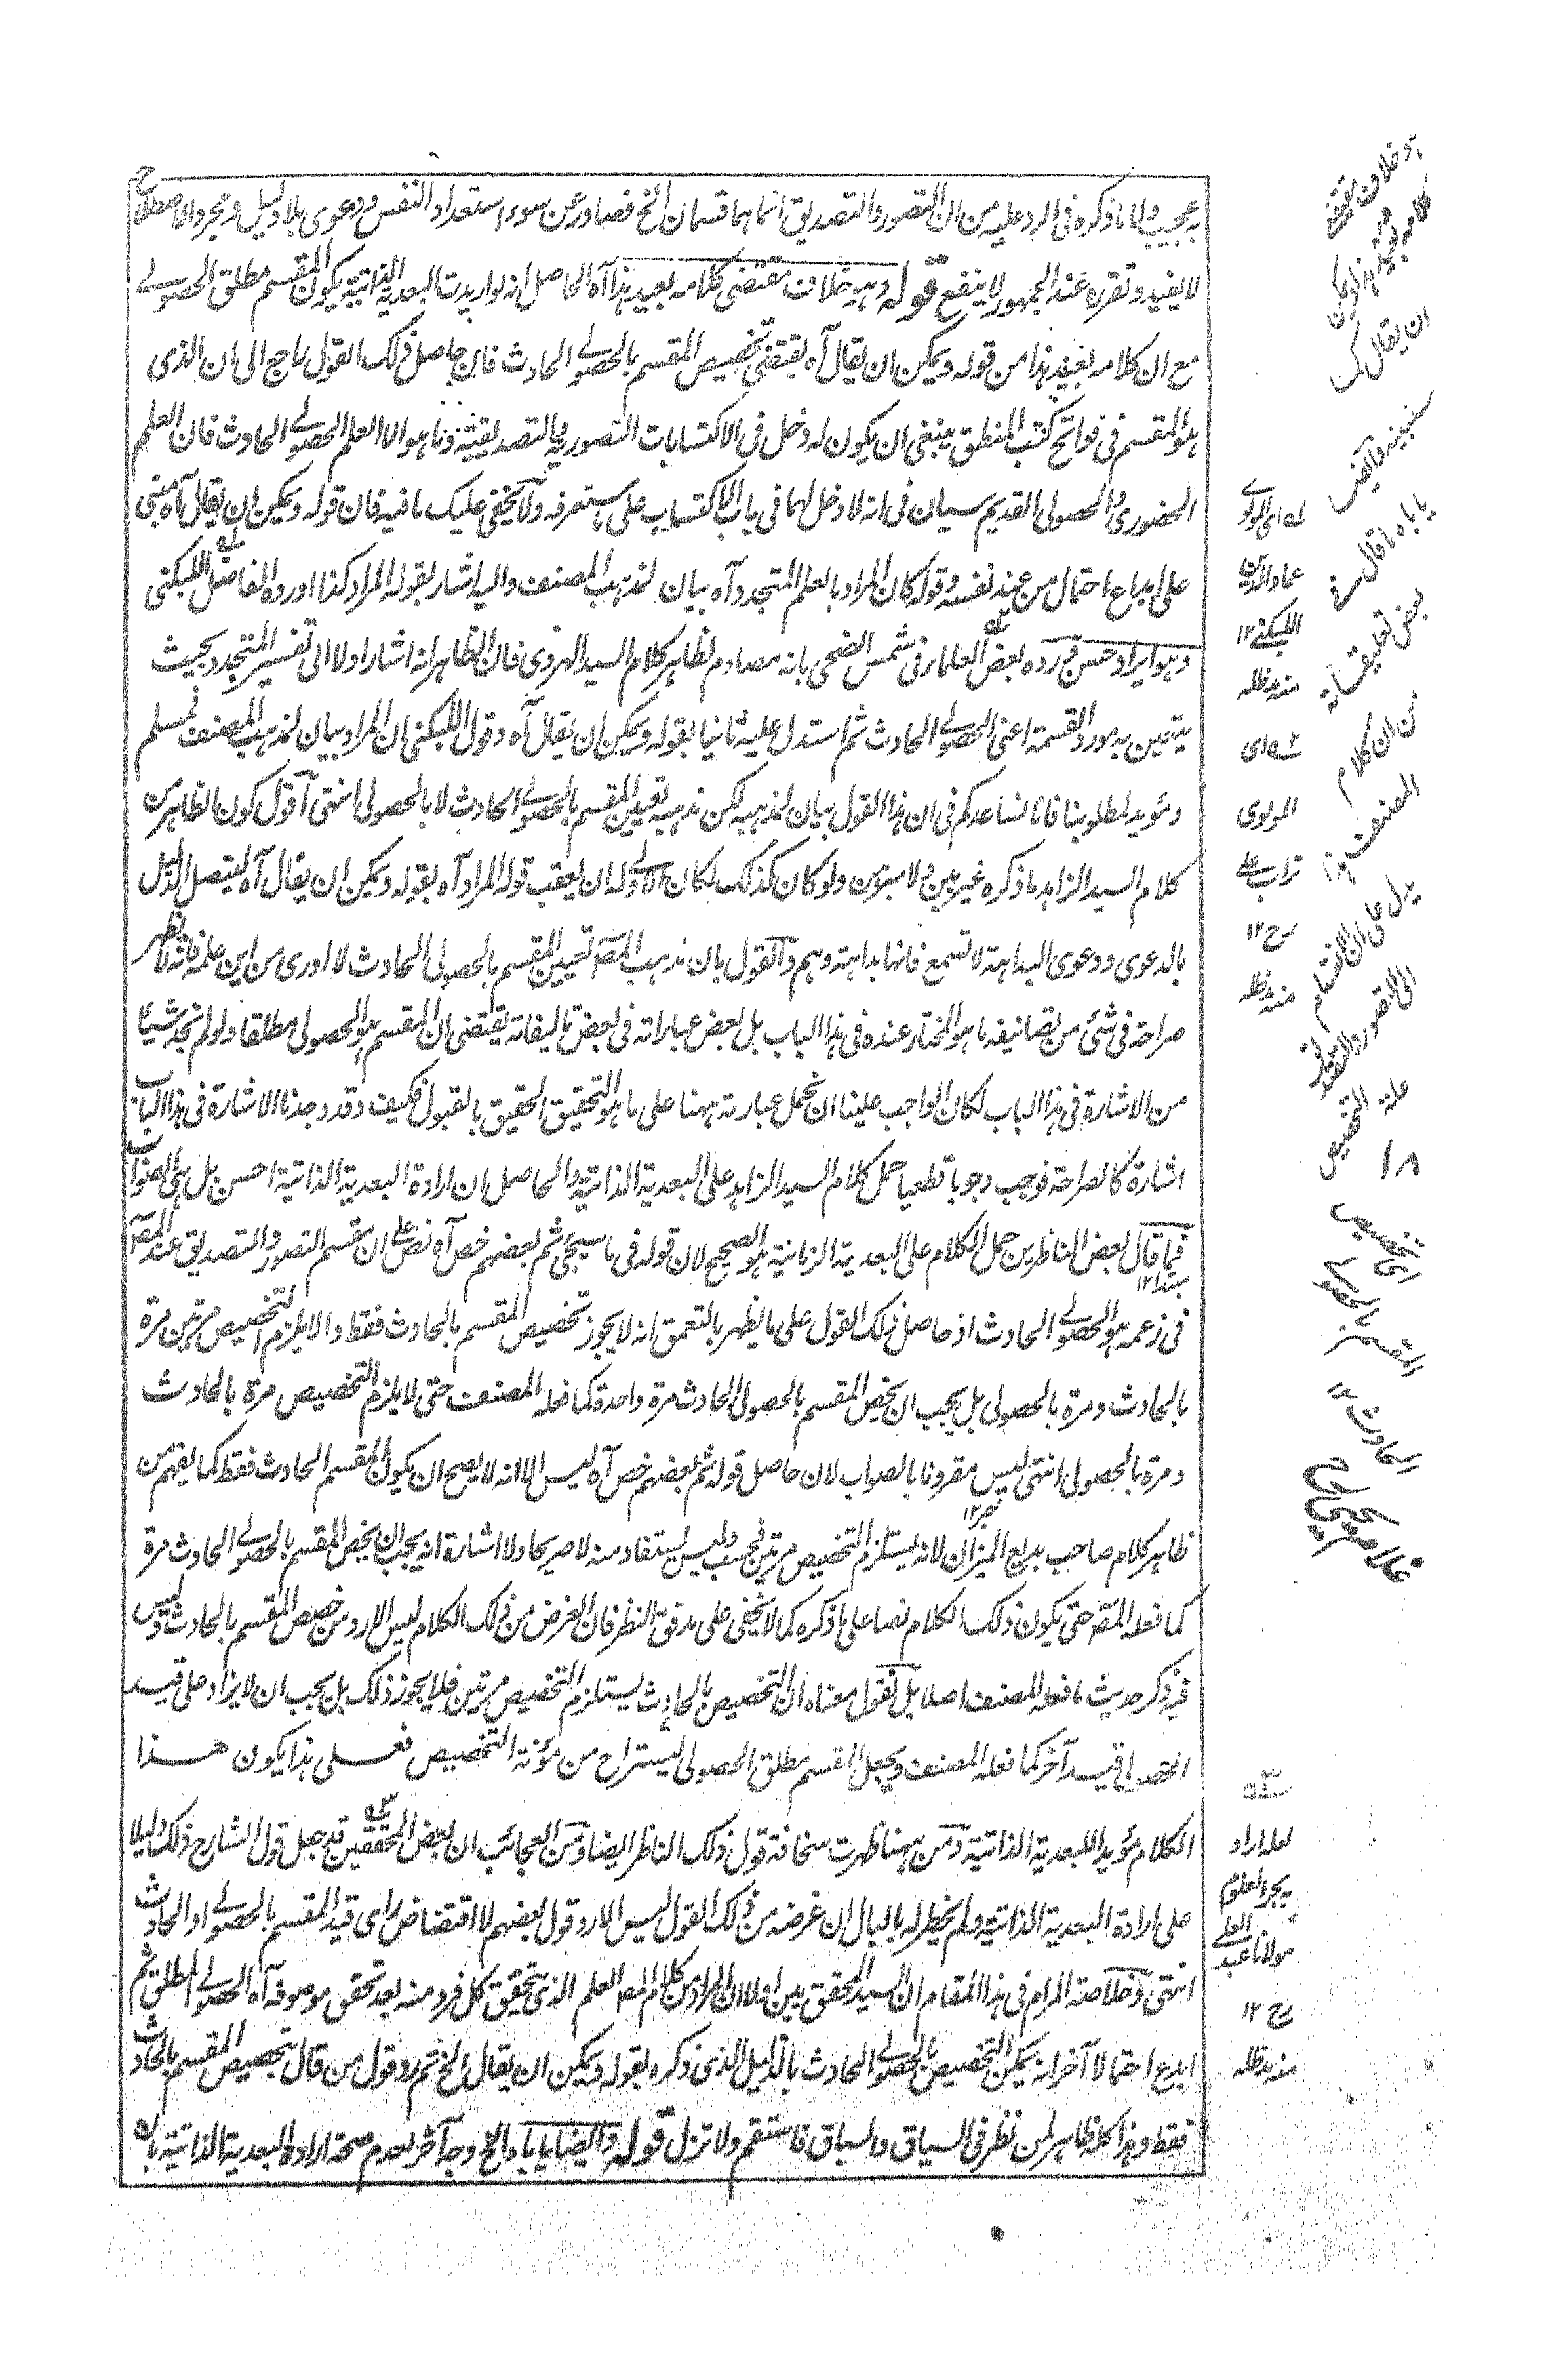 به عجيب واما ما ذكره فى الرد عليه من ان التصور والتصديق انما هما قسمان الخ فصادر عن سوء استعداد النفس ودعوى بلا دليل ومجرد الاصطلاح
لا يفيد وتقرره عند الجمهور لا ينفع قوله وهو خلاف مقتضى كلامه بعيد هذا آه الحاصل انه لو اريدت البعدية الذاتية يكون المقسم مطلق الحصولے
مع ان كلامه بعيد هذا من قوله ويمكن ان يقال آه يقتضى تخصيص المقسم بالحصولے الحادث فان حاصل ذلك القول راجع الى ان الذى
هو المقسم فى فواتح كتب المنطق ينبغى ان يكون له دخل فى الاكتسابات التصورية والتصديقية وما هو الا العلم الحصولے الحادث فان العلم
الحضورى والحصولى القديم سيان فى انه لا دخل لهما فى باب الاكتساب على ما ستعرفه ولا يخفى عليك ما فيه فان قوله ويمكن ان يقال آه مبنى
على ابداع احتمال من عند نفسه وقوله كان المراد بالعلم المتجدد آه بيان لمذهب المصنف واليه اشار بقوله المراد كذا اورده الفاضل اللبكنى
وهو ايراد حسن ورده بعض العلماء فى شمس الضحى بانه مصادم لظاهر كلام السيد الهروى فان الظاهر انه اشار اولا الى تفسير المتجدد بحيث
يتعين به مورد القسمة اعنى الحصولے الحادث ثم استدل عليه ثانيا بقوله ويمكن ان يقال آه وقول اللبكنى ان المراد بيان لمذهب المصنف مسلم
ومؤيد لمطلوبنا فانا نساعدكم فى ان هذا القول بيان لمذهبه لكن مذهبه تعيين المقسم بالحصولے الحادث لا بالحصولى انتهى اقول كون الظاهر من
كلام السيد الزاهد ما ذكره غير بين ولا مبرهن ولو كان كذلك لكان الاولے له ان يعقب قوله المراد آه بقوله ويمكن ان يقال آه ليتصل الدليل
بالدعوى ودعوى البداهة لا تسمع فانها بداهة وهم والقول بان مذهب المصـ تعيين المقسم بالحصولى الحادث لا ادرى من اين علمه فانه لا يظهر
صراحة فى شئ من تصانيفه ما هو المختار عنده فى هذا الباب بل بعض عباراته فى بعض تاليفاته يقتضى ان المقسم هو الحصولى مطلقا ولو لم نجد شيئا
من الاشارة فى هذا الباب لكان الواجب علينا ان نحمل عبارته ههنا على ما هو التحقيق الحقيق بالقبول فكيف وقد وجدنا الاشارة فى هذا الباب
اشارة كالصراحة فوجب وجوبا قطعيا حمل كلام السيد الزاهد على البعدية الذاتية والحاصل ان ارادة البعدية الذاتية احسن بل هى الصواب
فما قال بعض الناظرين حمل الكلام على البعدية الزمانية هو الصحيح لان قوله فى ما سيجئ ثم بعضهم خص آه نص على ان مقسم التصور والتصديق عند المصـ
مبتدا ۱۲
فى زعمه هو الحصولے الحادث اذ حاصل ذلك القول على ما يظهر بالتعمق انه لا يجوز تخصيص المقسم بالحادث فقط والا يلزم التخصيص مرتين مرة
بالحادث ومرة بالحصولى بل يجب ان يخص المقسم بالحصولى الحادث مرة واحدة كما فعله المصنف حتى لا يلزم التخصيص مرة بالحادث
ومرة بالحصولى انتهى ليس مقرونا بالصواب لان حاصل قوله ثم بعضهم خص آه ليس الا انه لا يصح ان يكون المقسم الحادث فقط كما يفهم من
خبر ۱۲
ظاهر كلام صاحب بديع الميزان لانه يستلزم التخصيص مرتين فحسب وليس يستفاد منه لا صريحا ولا اشارة انه يجب ان يخص المقسم بالحصولے الحادث مرة
كما فعله المصـ حتى يكون ذلك الكلام نصا على ما ذكره كما لا يخفى على مدقق النظر فان الغرض من ذلك الكلام ليس الا رد من خصص المقسم بالحادث وليس
فيه ذكر حديث ما فعله المصنف اصلا بل نقول معناه ان التخصيص بالحادث يستلزم التخصيص مرتين فلا يجوز ذلك بل يجب ان لا يزاد على قيد
الحصولى قيد آخر كما فعله المصنف ويجعل المقسم مطلق الحصولى ليستراح من مؤنة التخصيص فعلى هذا يكون هذا
الكلام مؤيدا للبعدية الذاتية ومن ههنا ظهرت سخافة قول ذلك الناظر ايضا ومن العجائب ان بعض المحققين قد جعل قول الشارح ذلك دليلا
على ارادة البعدية الذاتية ولم يخطر له بالبال ان غرضه من ذلك القول ليس الا رد قول بعضهم لا اقتضاض راى قيد المقسم بالحصولے او الحادث
انتهى وخلاصة المرام فى هذا المقام ان السيد المحقق بين اولا ان المراد من كلام المصـ العلم الذى تحقق كل فرد منه بعد تحقق موصوفه آه الحصولے المطلق ثم
ابدع احتمالا آخر انه يمكن التخصيص بالحصولے الحادث بالدليل الذى ذكره بقوله ويمكن ان يقال الخ ثم رد قول من قال بتخصيص المقسم بالحادث
فقط وهذا كله ظاهر لمن نظر فى السياق والسباق فاستقم ولا تزل قوله وايضا يأباه الخ وجه آخر لعدم صحة ارادة البعدية الذاتية بان
له اى المولوے
عماد الدين
اللبكنى ۱۲
منه مد ظله
۲ه اى
المولوى
تراب على
رح ۱۲
منه مد ظله
۳ه
لعله اراد
به بحر العلوم
مولانا عبد العلے
رح ۱۲
منه مد ظله
هو خلاف مقتضى
كلامه بعيد هذا ويمكن
ان يقال آه
سنبينه وايضا
يأباه ما قال فى
بعض تعليقاته
من ان كلام
المصنف
يدل على ان انقسام
الى التصور والتصديق
علة التخصيص
۱۸
اى تخصيص
المقسم بالحصولے
الحادث ۱۲